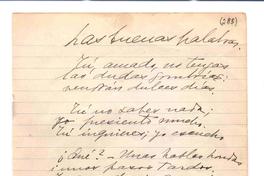 (288)
Las buenas palabras.
Tú, amado, no tengas
las dudas sombrías:
vendrán dulces días.
Tú no sabes nada;
yo presiento mucho.
Tú inquieres; yo escucho
¿Qué? – Unas hablas hondas
unos pasos tardos